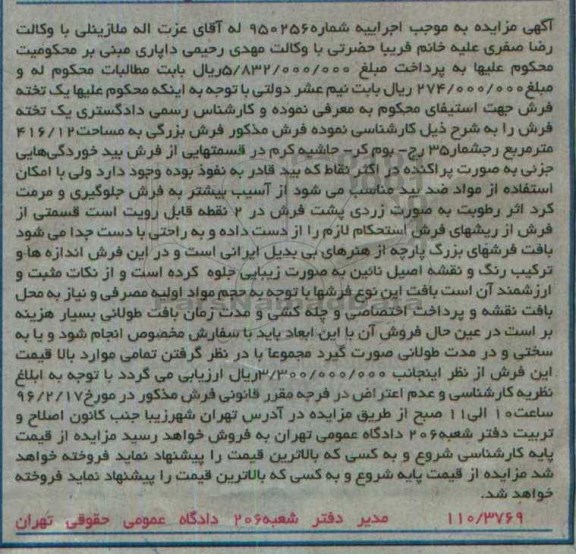 آگهی مزایده به موجب اجراییه شماره۹۵۰۲۵۶ له آقای عزت اله ملازینلی با وکالت
رضا صفری علیه خانم فریبا حضرتی با وکالت مهدی رحیمی داپاری مبنی بر محکومیت
محکوم علیها به پرداخت مبلغ ۵/۸۳۲/۰۰۰/۰۰۰ریال بابت مطالبات محکوم له و
مبلغ۲۷۴/۰۰۰/۰۰۰ ریال بابت نیم عشر دولتی با توجه به اینکه محکوم علیها یک تخته
فرش جهت استیفای محکوم به معرفی نموده و کارشناس رسمی دادگستری یک تخته
فرش را به شرح ذیل کارشناسی نموده فرش مذکور فرش بزرگی به مساحت۴۱۶/۱۲
مترمربع رجشمار۳۵ رج- بوم کر- حاشیه کرم در قسمتهایی از فرش بید خوردگی‌هایی
جزئی به صورت پراکنده در اکثر نقاط که بید قادر به نفوذ بوده وجود دارد ولی با امکان
استفاده از مواد ضد بید مناسب می شود از آسیب بیشتر به فرش جلوگیری و مرمت
کرد اثر رطوبت به صورت زردی پشت فرش در ۲ نقطه قابل رویت است قسمتی از
فرش از ریشهای فرش استحکام لازم را از دست داده و به راحتی با دست جدا می شود
بافت فرشهای بزرگ پارچه از هنرهای بی بدیل ایرانی است و در این فرش اندازه ها و
ترکیب رنگ و نقشه اصیل نائین به صورت زیبایی جلوه کرده است و از نکات مثبت و
ارزشمند آن است بافت این نوع فرشها با توجه به حجم مواد اولیه مصرفی و نیاز به محل
بافت نقشه و پرداخت اختصاصی و چله کشی و مدت زمان بافت طولانی بسیار هزینه
بر است در عین حال فروش آن با این ابعاد باید با سفارش مخصوص انجام شود و یا به
سختی و در مدت طولانی صورت گیرد مجموعا با در نظر گرفتن تمامی موارد بالا قیمت
این فرش از نظر اینجانب ۳/۳۰۰/۰۰۰/۰۰۰ریال ارزیابی می گردد با توجه به ابلاغ
نظریه کارشناسی و عدم اعتراض در فرجه مقرر قانونی فرش مذکور در مورخ۹۶/۲/۱۷
ساعت۱۰ الی۱۱ صبح از طریق مزایده در آدرس تهران شهرزیبا جنب کانون اصلاح و
تربیت دفتر شعبه۲۰۶ دادگاه عمومی تهران به فروش خواهد رسید مزایده از قیمت
پایه کارشناسی شروع و به کسی که بالاترین قیمت را پیشنهاد نماید فروخته خواهد
شد مزایده از قیمت پایه شروع و به کسی که بالاترین قیمت را پیشنهاد نماید فروخته
خواهد شد.
۱۱۰/۳۷۶۹ مدیر دفتر شعبه۲۰۶ دادگاه عمومی حقوقی تهران